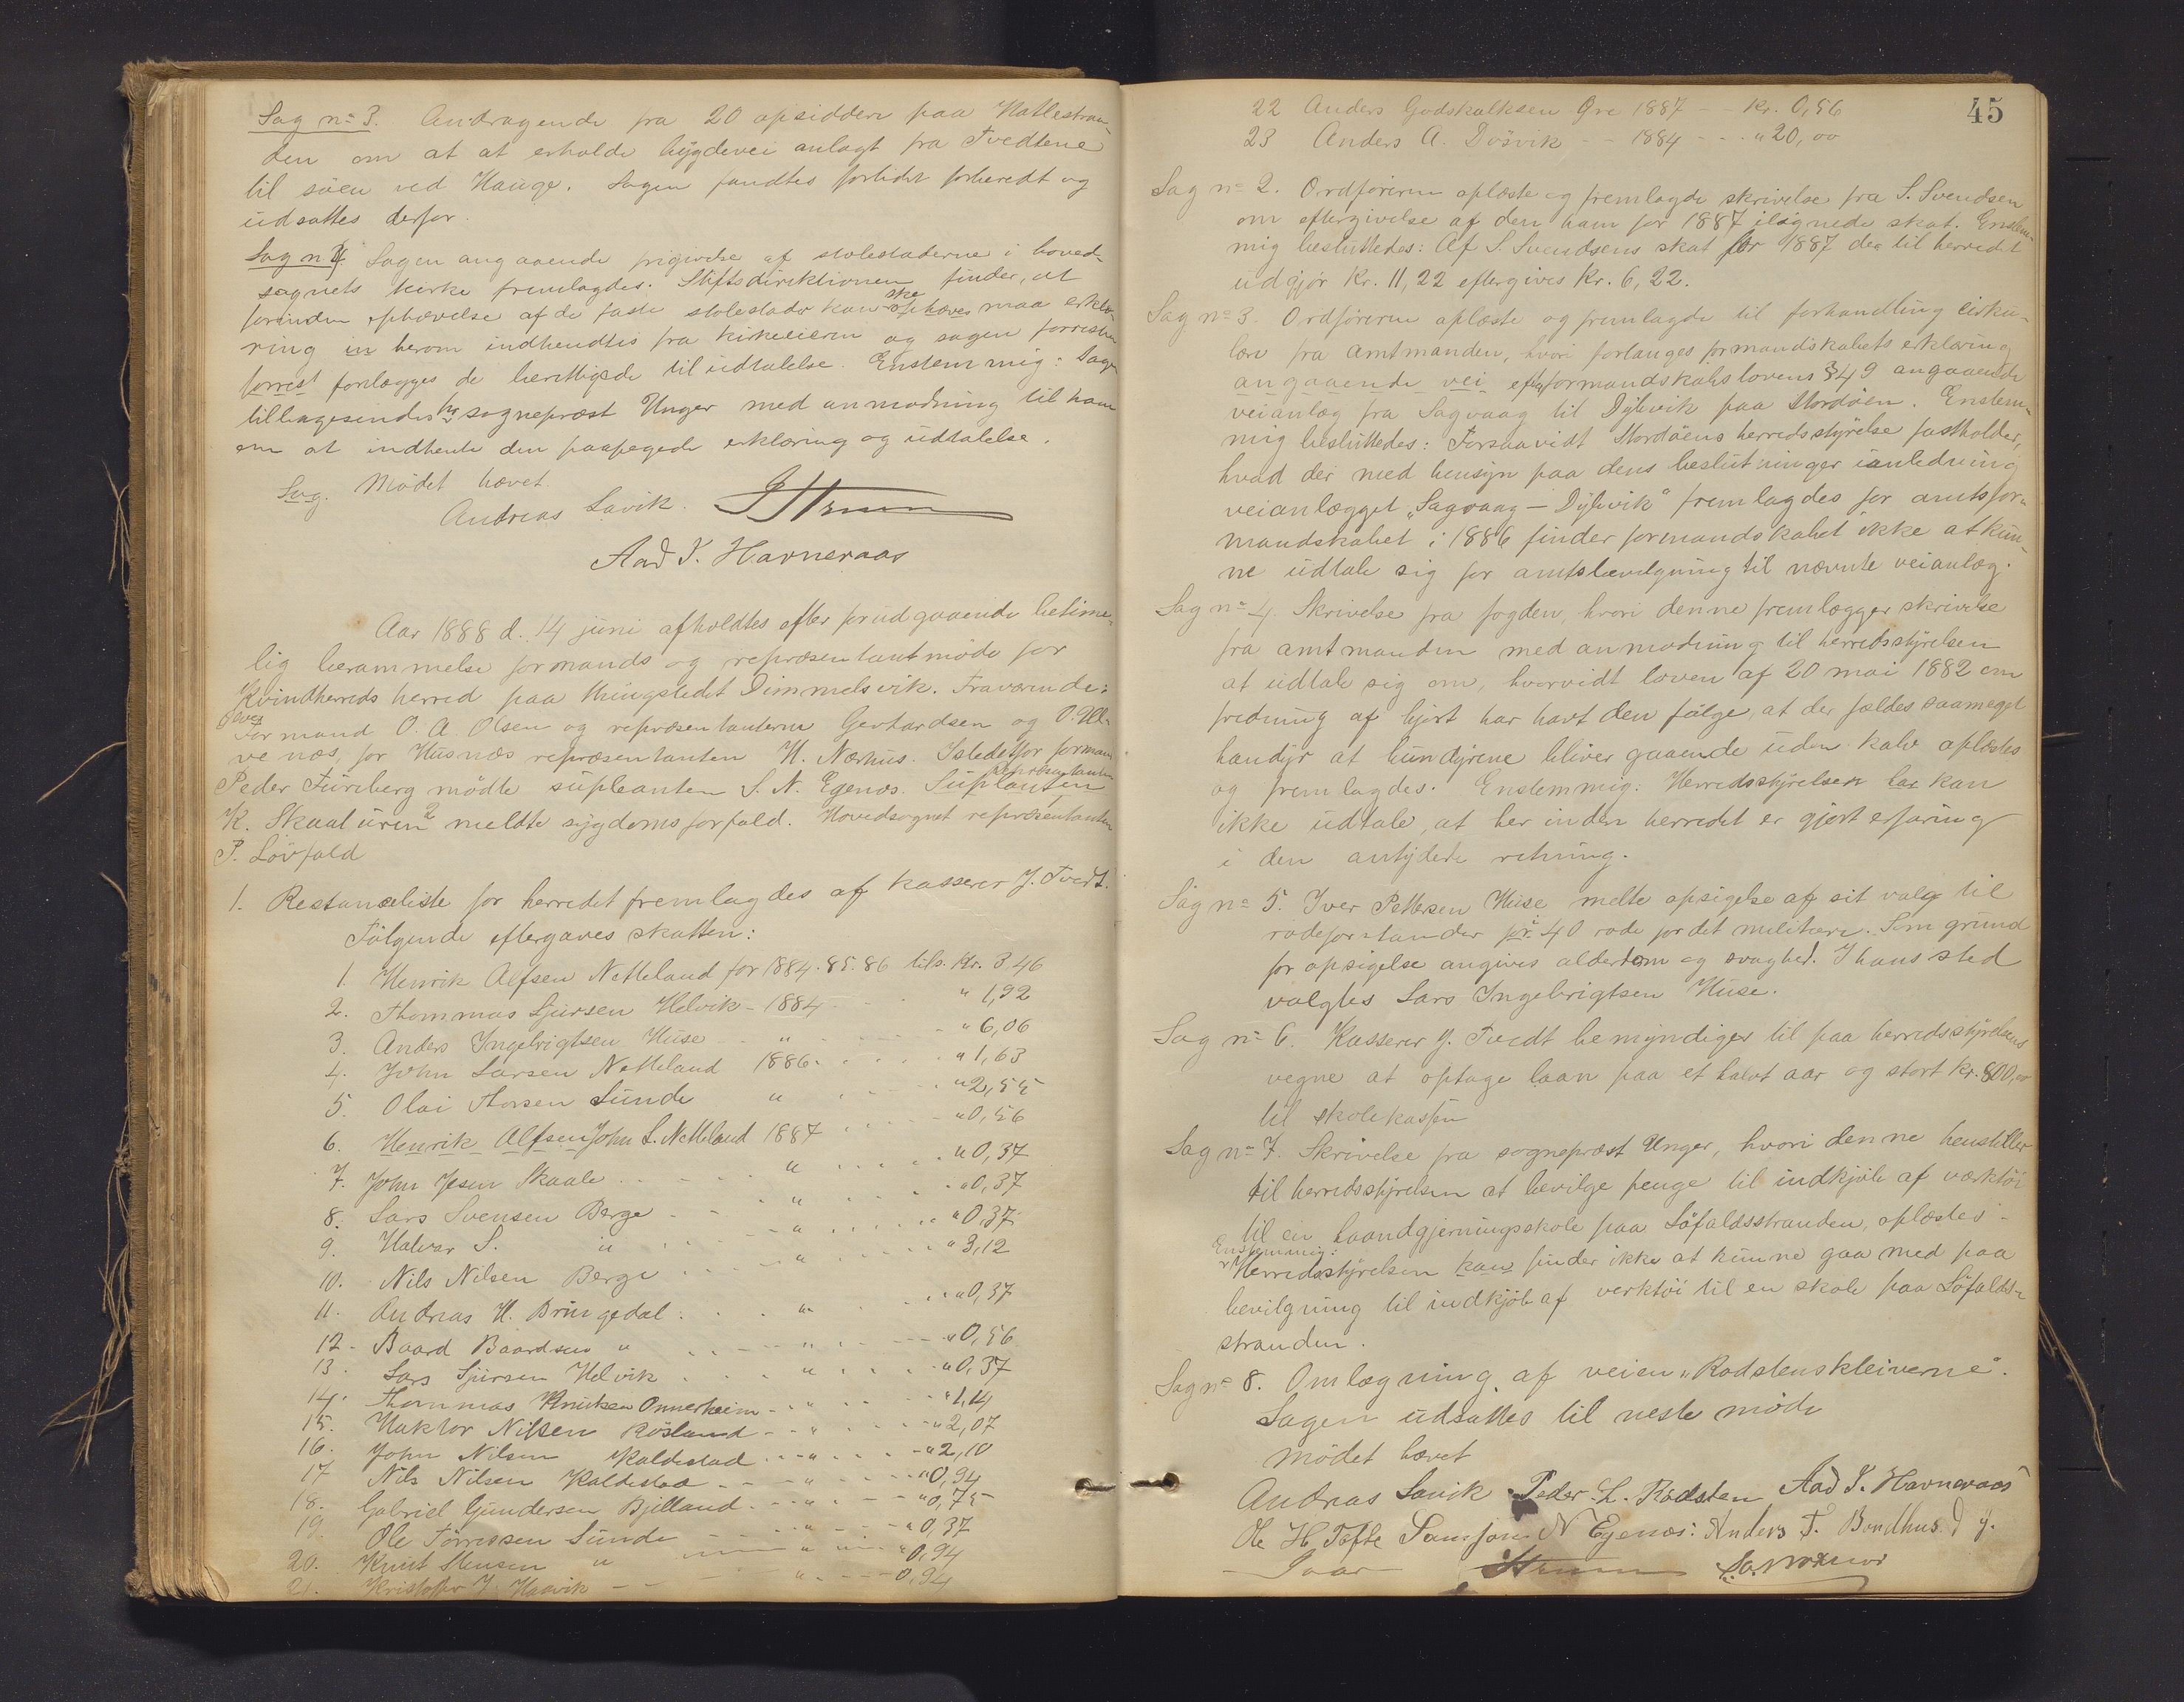 Sag no 3. Andragende fra 20 opsiddere paa Hatlestran-
den om at at erholde bygdevei anlagt fra Tvedtene
til søen ved Hauge. Sagen fandtes forlidet forberedt og
udsattes derfor.
Sag no 4. Sagen angaaende frigivelse af stolestaderne i hoved-
sognets kirke fremlagdes. Stiftsdirektionen finder, at
forinden ophævelse af de faste stolestader kan ske ophæves maa erklæ-
ring in herom indhendtes fra kirkeeieren og sagen forresten
forrest forelægges de berettigede til udtalelse. Enstemmig: Sagen
tilbagesendes hr sognepræst Unger med anmodning til ham
om at indhente den paapegede erklæring og udtalelse.
Sag. Mødet hævet.
Andreas Savik.
Aad J. Havneraas
Aar 1888 d. 14 juni afholdtes efter forudgaaende betime-
lig berammelse formands og repræsentantmøde for
Kvindherreds herred paa thingstedet Dimmelsvik. Fraværende:
Formand O. A. Olsen og repræsentanterne Gerhardsen og O. Ul-
ve næs, for Husnæs repræsentanten H. Nærhus. Istedetfor forman
Peder Furuberg mødte supleanten S. N. Egenæs. Suplanten repræsentanten
K. Skaaluren 2 meldte sygdomsforfald. Hovedsognet repræsentanten
P. Løvfald
1. Restanceliste for herredet fremlagdes af kasserer J. Tvedt.
Følgende eftergaves skatten:
1. Henrik Alfsen Netteland for 1884. 85. 86 tils. Kr. 3 46
2. Thommas Sjursen Helvik - 1884 " 1,92
3. Anders Ingebrigtsen Huse " " 6,06
4. John Larsen Netteland 1886. " 1,63
5. Olai Thorsen Sunde " " 2,55
6. Henrik Alfsen John L. Netteland 1887 " 0,56
7. John Jesen Skaale " " 0,37
8. Lars Svensen Berge " " 0,37
9. Halvar S. " " " 0,37
10. Nils Nilsen Berge " " 3,12
11. Andreas H. Bringedal " " 0,37
12. Baard Baardsen " " " 0,56
13. Lars Sjursen Helvik " " 0,37
14. Thommas Knutsen Onnerheim " " 1,14
15. Haktor Nilsen Røsland " " 2,07
16. John Nilsen Kaldestad " " 2,10
17 Nils Nilsen Kaldestad " " 0,94
18. Gabriel Gundersen Bjelland " " 0,75
19. Ole Tørressen Sunde " " 0,37
20. Knut Stensen " " " 0,94
21. Kristofer J. Haavik " 0,94
45
22 Anders Godskalksen Øre 1887 - Kr. 0,56
23 Anders A. Døsvik - - 1884 - - - " 20,00
Sag no 2. Ordføreren oplæste og fremlagde skrivelse fra S. Svendsen
om eftergivelse af den ham for 1887 ilignede skat. Enstem-
mig besluttedes: Af S. Svendsens skat for 1887 der til herredet
udgjør Kr. 11,22 eftergives Kr. 6,22.
Sag no 3. Ordføreren oplæste og fremlagde til forhandling cirku-
lære fra amtmanden, hvori forlanges formandskabets erklæring
angaaende vei efter formandskabslovens § 49 angaaende
veianlæg fra Sagvaag til Dybvik paa Stordøen. Enstem-
mig besluttedes: Forsaavidt Stordøens herredsstyrelse fastholder,
hvad der med hensyn paa dens beslutninger i anledning
veianlægget „Sagvaag - Dybvik" fremlagdes for amtsfor-
mandskabet i 1886 finder formandskabet ikke at kun-
ne udtale sig for amtsbevilgning til nævnte veianlæg.
Sag no 4. Skrivelse fra fogden, hvori denne fremlægger skrivelse
fra amtmanden med anmodning til herredsstyrelsen
at udtale sig om, hvorvidt loven af 20 mai 1882 om
fredning af hjort har havt den følge, at der fældes saameget
handyr at hundyrene bliver gaaende uden kalv oplæstes
og fremlagdes. Enstemmig: Herredsstyrelsen har kan
ikke udtale, at her inden herredet er gjort erfaring
i den antydede retning.
Sag no 5. Iver Pettersen Huse melte opsigelse af sit valg til
rodeforstander for 40 rode for det militære. Som grund
for opsigelse angives alderdom og svaghed. I hans sted
valgtes Lars Ingebrigtsen Huse.
Sag no 6. Kasserer J. Tvedt bemyndiges til paa herredsstyrelsens
vegne at optage laan paa et halvt aar og stort kr. 800,00
til skolekassen
Sag no 7. Skrivelse fra sognepræst Unger, hvori denne henstiller
til herredsstyrelsen at bevilge penge til indkjøb af værktøi
til en haandgjerningsskole paa Løfaldsstranden, oplæstes -
Enstemmig:
Herredsstyrelsen kan finder ikke at kunne gaa med paa
bevilgning til indkjøb af verktøi til en skole paa Løfalds-
stranden.
Sag no 8. Omlægning af veien „Rodstenskleiverne".
Sagen udsattes til neste møde
Mødet hævet
Andreas Savik Peder L. Rødsten Aad J. Havneraas
Ole H. Tofte Samson N Egenæs: Anders T. Bondhus. d y.